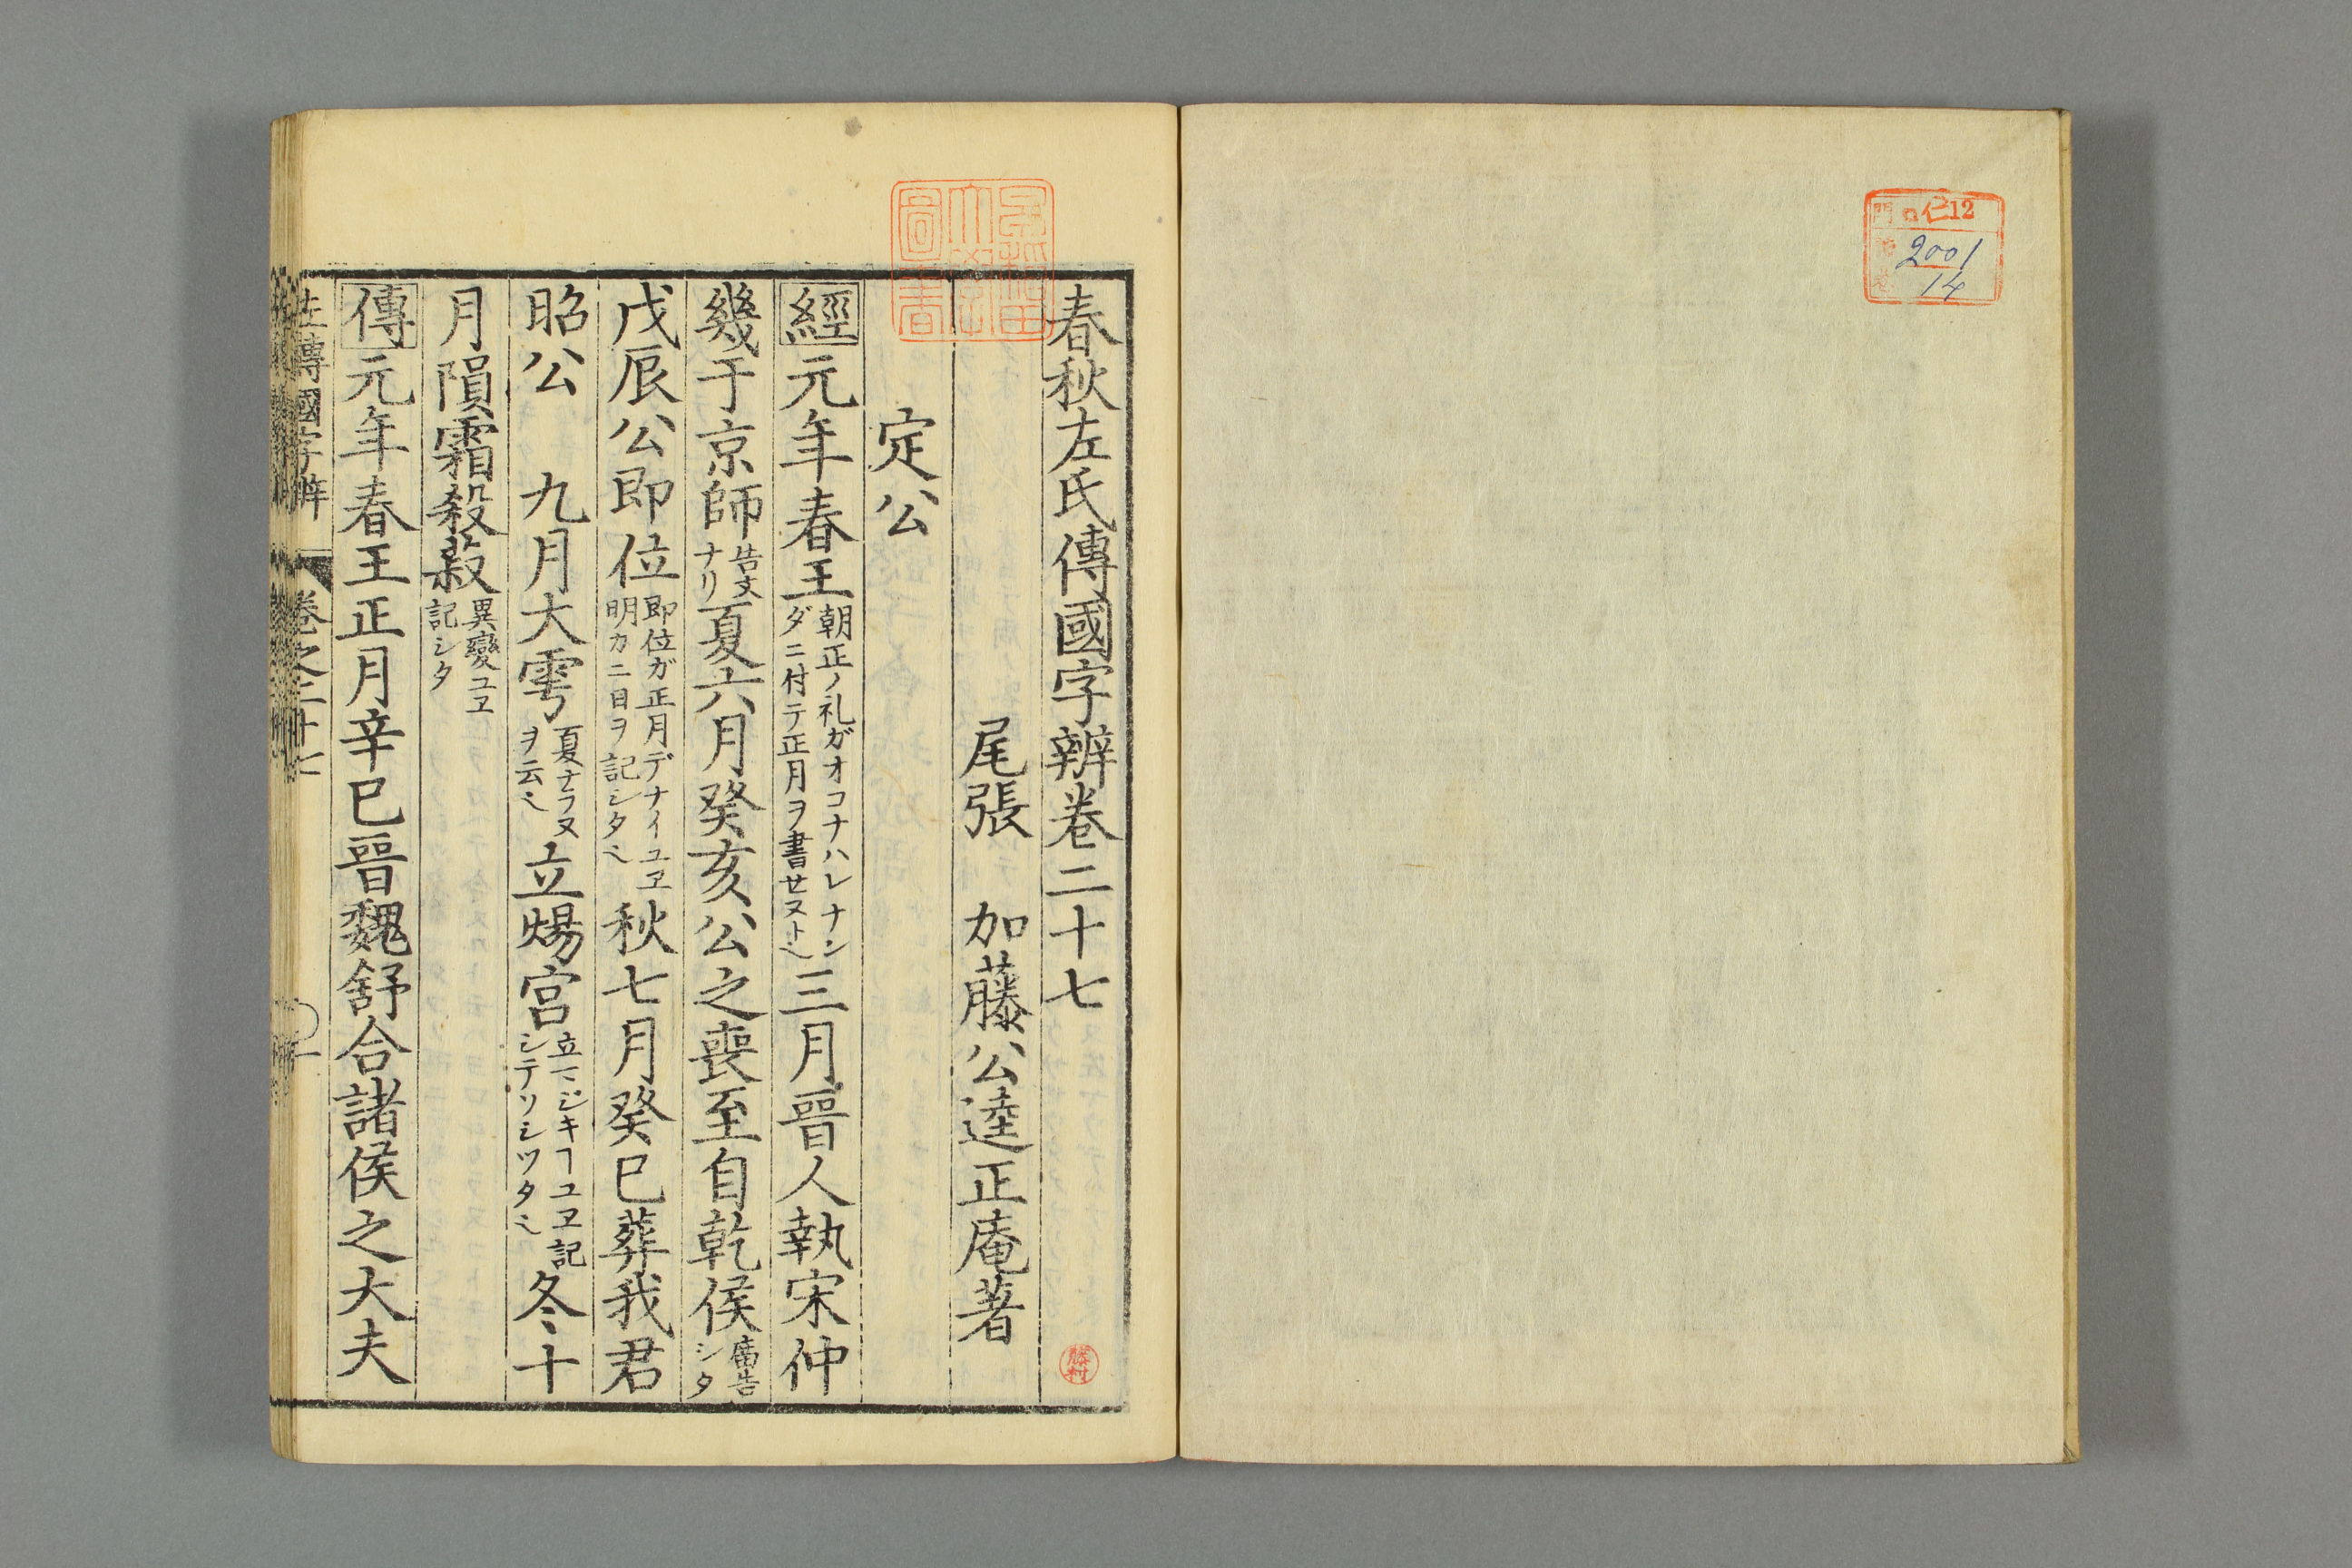 門 仁12
2001
14
早稲田大學圖書
春秋左氏傳國字辨卷二十七
尾張 加藤公逵正庵著
勝村
定公
經元年春王朝正ノ礼ガオコナハレナンダニ付テ正月ヲ書せヌト也三月晉人執宋仲
幾于京師告文ナリ夏六月癸亥公之喪至自乾侯廣告シタ
戊辰公即位即位ガ正月デナイユヱ明カニ日ヲ記シタ也秋七月癸巳葬我君
昭公 九月大雩夏ナラヌヲ云也立煬宮立マジキヿユヱ記シテソシツタ也冬十
月隕霜殺菽異變ユヱ記シタ
傳元年春王正月辛巳晉魏舒合諸侯之大夫
左傳國字辨 卷之二十七 一